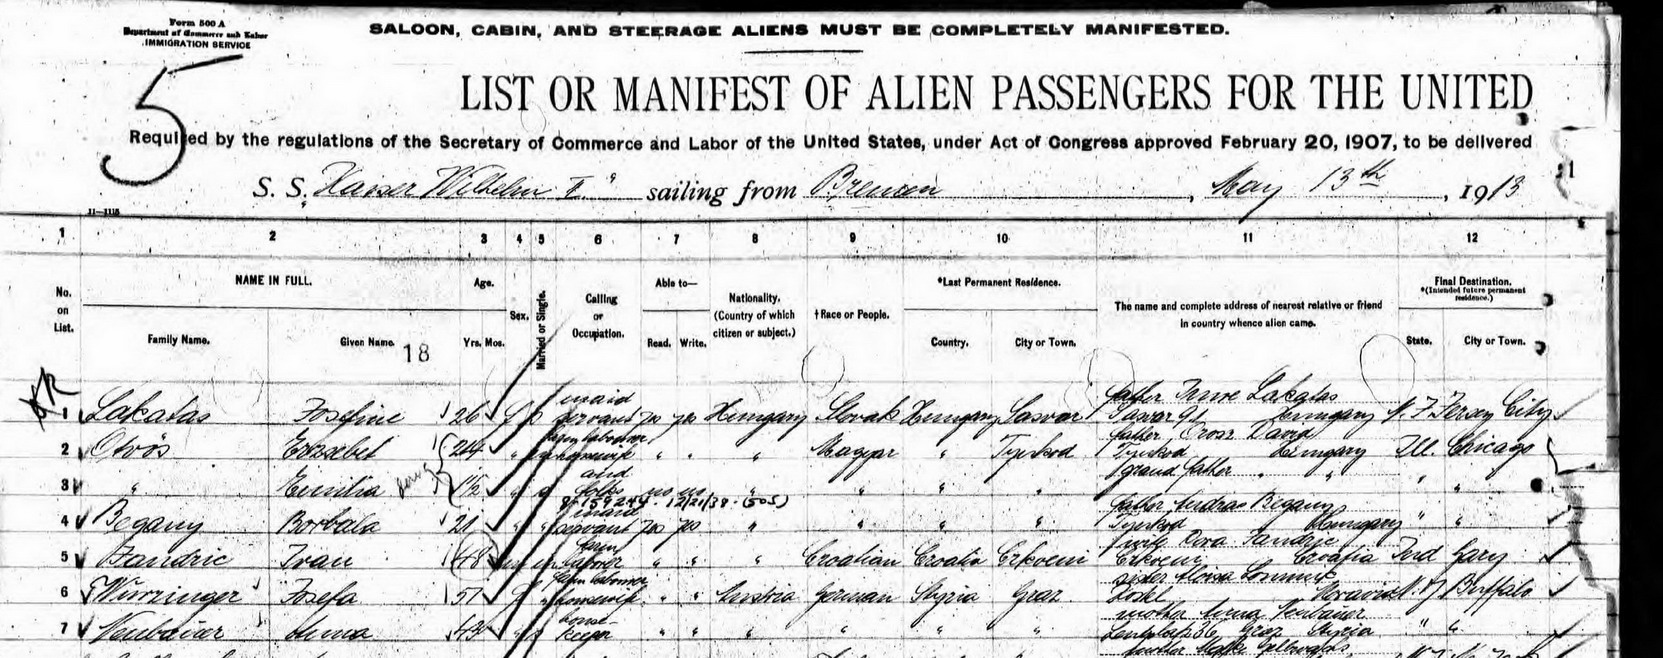 Form 500 A
Department of Commerce and Labor
IMMIGRATION SERVICE
SALOON, CABIN, AND STEERAGE ALIENS MUST BE COMPLETELY MANIFESTED.
5
LIST OR MANIFEST OF ALIEN PASSENGERS FOR THE UNITED
Required by the regulations of the Secretary of Commerce and Labor of the United States, under Act of Congress approved February 20, 1907, to be delivered
S. S. "Kaiser Wilhelm II" sailing from Bremen, May 13th, 1913
1 2 3 4 5 6 7 8 9 10 11 12
No. on List. NAME IN FULL. Age. Sex. Married or Single. Calling or Occupation. Able to— Nationality. (Country of which citizen or subject.) †Race or People. *Last Permanent Residence. The name and complete address of nearest relative or friend in country whence alien came. Final Destination. *(Intended future permanent residence.)
Family Name. Given Name. 18 Yrs. Mos. Read. Write. Country. City or Town. State. City or Town.
1 Lakatas Josefine 26 f s maid servant yes yes Hungary Slovak Hungary Sasvar father Lakatas Sasvar Hungary N. J. Jersey City
2 Ötvös Erzsebet 24 " farm labourer housewife " " " Magyar " Tyukod father David Tyukod Hungary Ill. Chicago
3 " Emilia 1½ " s and no no " " " " grand father " " " "
159244 12/21/39 (505)
4 Begany Borbala 21 " " maid servant yes yes " " " " father Andras Begany Tyukod Hungary " "
5 Fandric Ivan 48 m m farm labourer " " " Croatian Croatia Crkveni wife Fandric Crkveni Croatia Ind Gary
6 Wurzinger Josefa 51 f " farm labourer housewife " " Austria German Styria Graz sister Moravia N. Y. Buffalo
7 Neubauer Anna 43 " s house-keeper " " " " " " mother Anna Neubauer Graz Styria " "